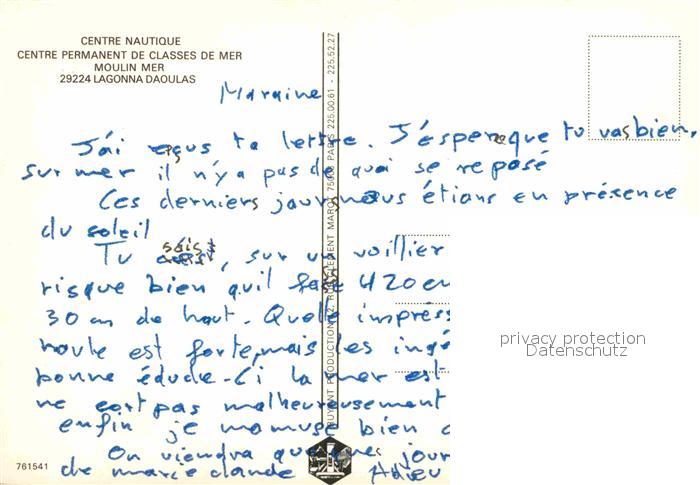 CENTRE NAUTIQUE
CENTRE PERMANENT DE CLASSES DE MER
MOULIN MER
29224 LAGONNA DAOULAS
Maraine
J'ai reçus ta lettre. J'espere que tu vas bien,
sur mer il n'y a pas de quoi se reposé
Ces derniers jours nous étions en présence
du soleil
Tu sais, sur un voillier
risque bien qu'il fase 420 cm
30 cm de haut. Quelle impress
houle est forte, mais les ingé
bonne édude. Ci la mer est
ne sort pas malheureusement
enfin je mamuse bien
On viendra quelques jour
de marie claude Adieu
761541
225.00.61 - 225.52.27
privacy protection
Datenschutz